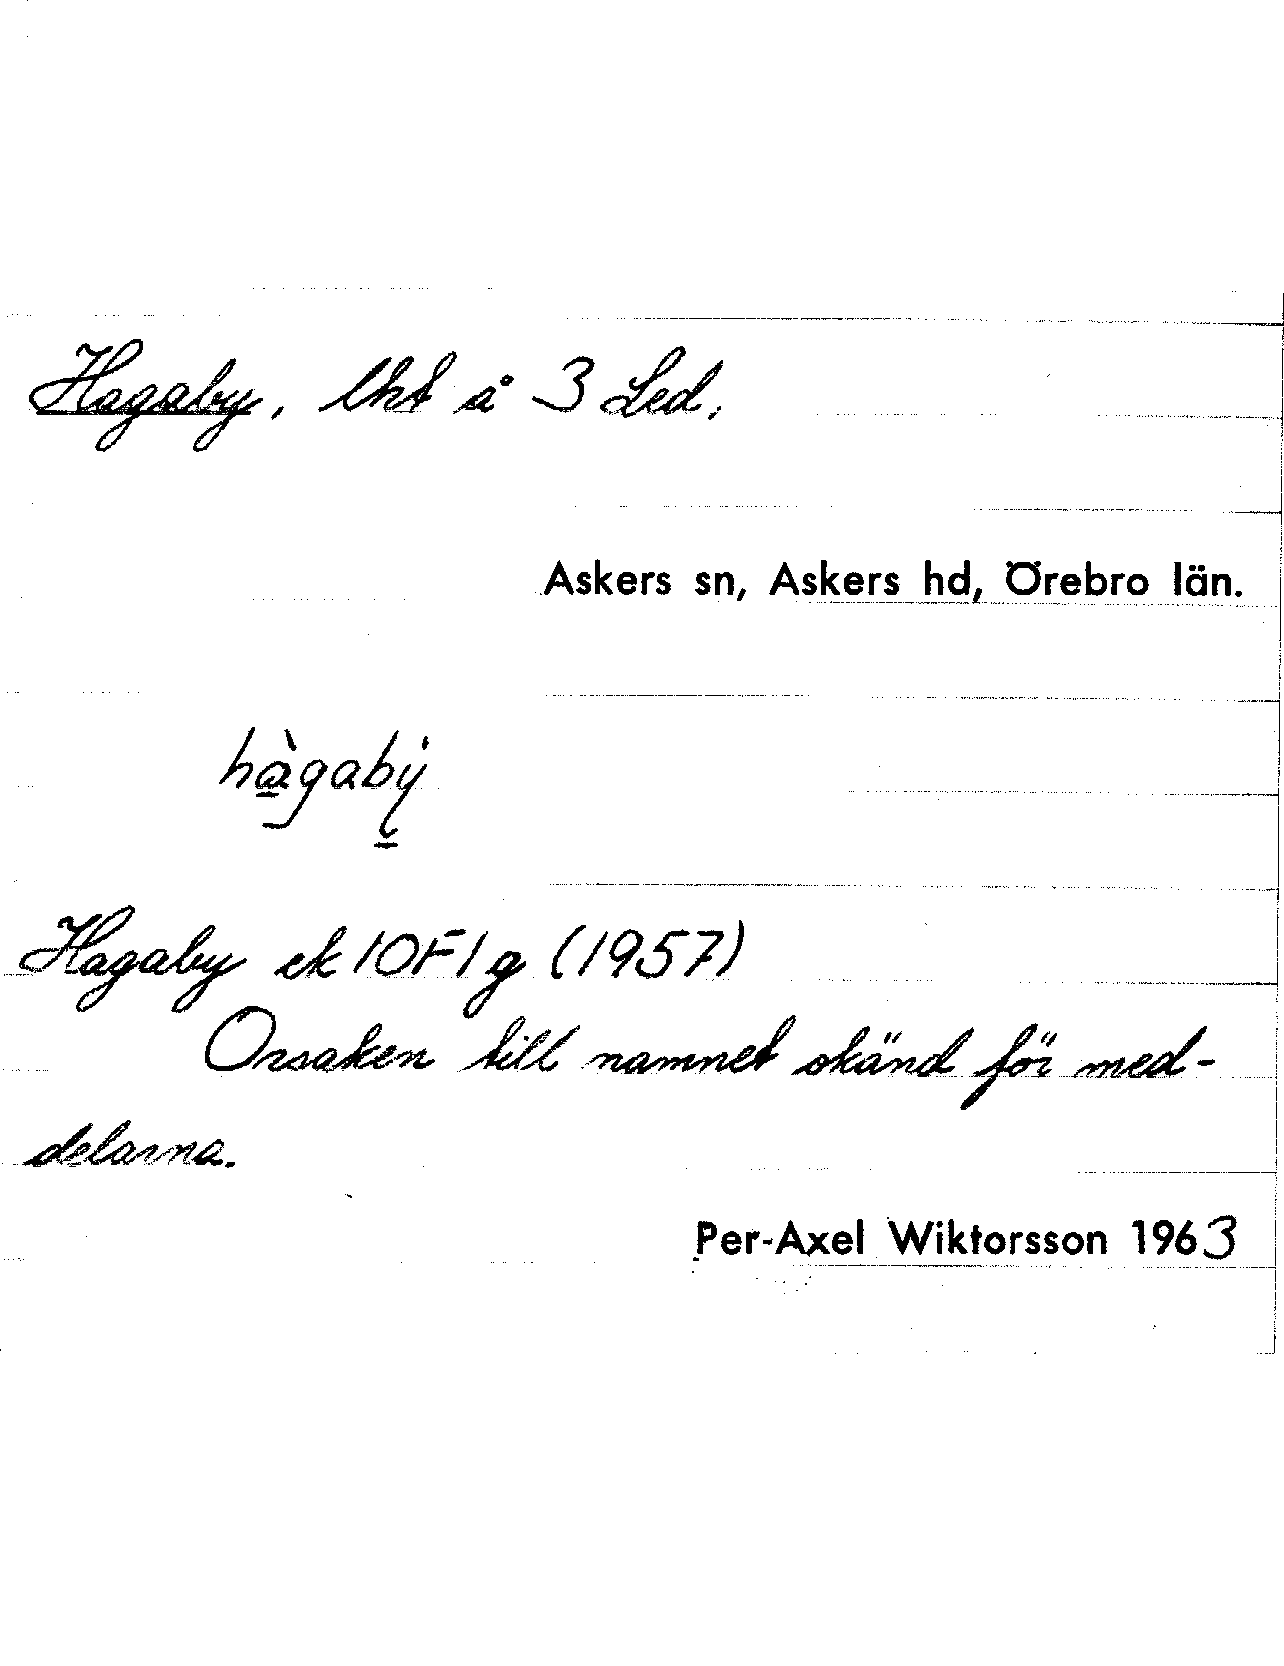 Hagaby, lht å 3 Led,
Askers sn, Askers hd, Örebro län.
hàgabẏ
Hagaby ek 10F1g (1957)
Orsaken till namnet okänd för med-
delarna.
Per-Axel Wiktorsson 1963